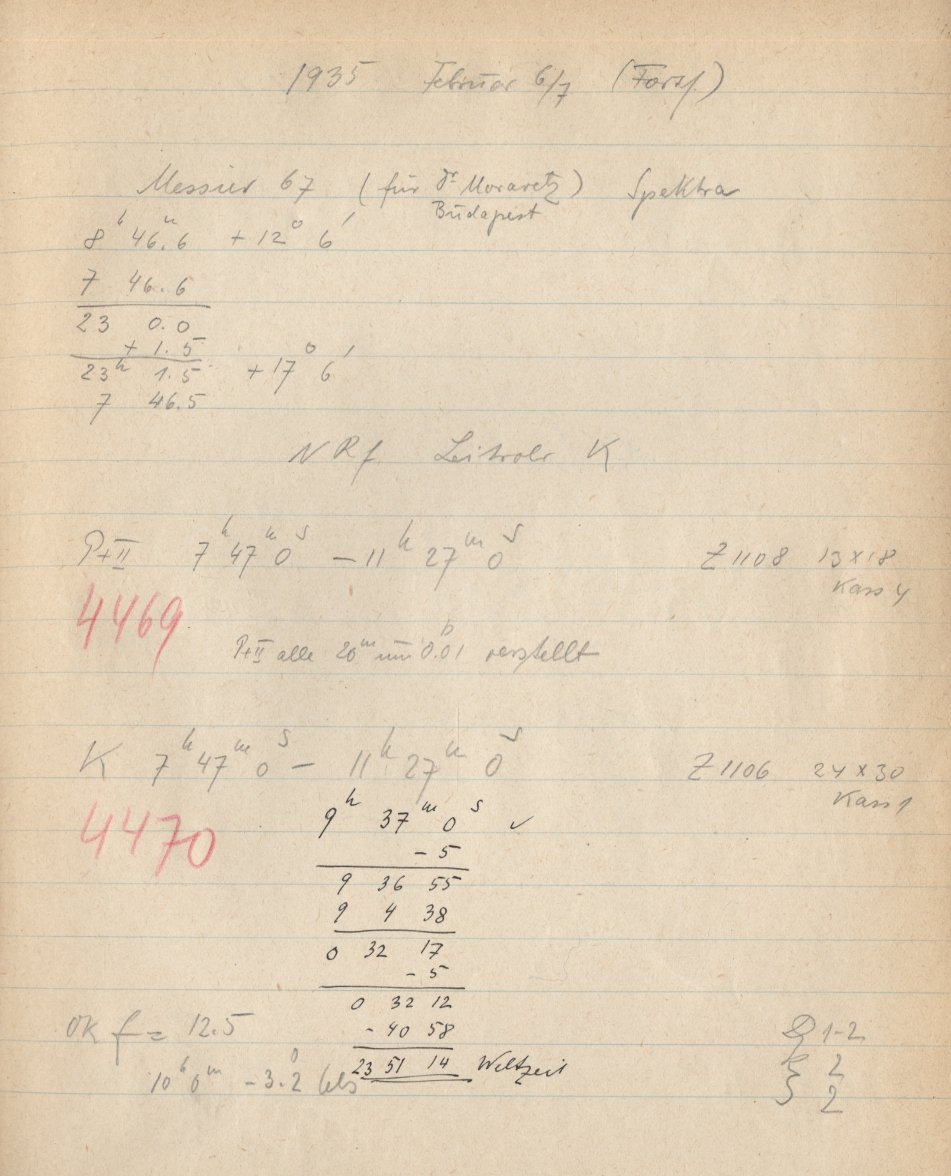 1935 Februar 6/7 (Forts.)
Messier 67 (für Dr Moravetz) Spektra
Budapest
8h 46.m6 + 12° 6′
7 46.6
23 0.0
+ 1.5
23h 1.5 + 17° 6′
7 46.5
NRf. Leitrohr K
P+II 7h 47m 0s – 11h 27m 0s Z 1108 13 x 18
Kass 4
4469
P+II alle 20m um 0.01 verstellt
K 7h 47m 0s – 11h 27m 0s Z 1106 24 x 30
Kass 1
4470
9h 37m 0s ✓
- 5
9 36 55
9 4 38
0 32 17
- 5
0 32 12
OK f = 12.5
- 40 58
1-2
23 51 14 Weltzeit
2
10h 0m – 3.°2 Cels
2